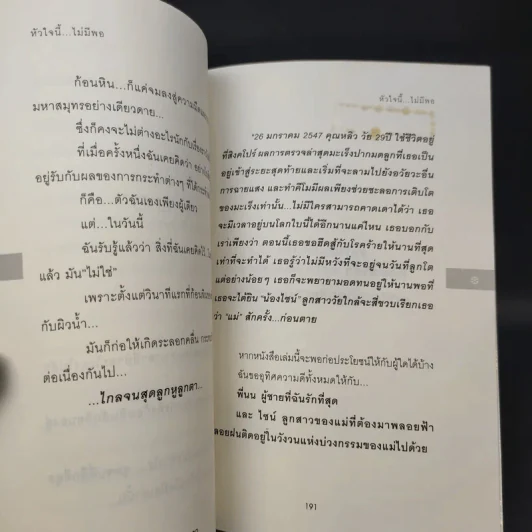 หัวใจนี้...ไม่มีพอ
ก้อนหิน...ก็แค่จมลงสู่ความมืด
มหาสมุทรอย่างเดียวดาย...
ซึ่งก็คงจะไม่ต่างอะไรนักกับเรื่อง
ที่เมื่อครั้งหนึ่งฉันเคยคิดว่า
อยู่รับกับผลของการกระทำต่างๆ ที่ได้
ก็คือ...ตัวฉันเองเพียงผู้เดียว
แต่...ในวันนี้
ฉันรับรู้แล้วว่า สิ่งที่ฉันเคยคิดไว้
แล้ว มัน"ไม่ใช่"
เพราะตั้งแต่วินาทีแรกที่ก้อนหิน
กับผิวน้ำ...
มันก็ก่อให้เกิดระลอกคลื่น
ต่อเนื่องกันไป...
...ไกลจนสุดลูกหูลูกตา..
หัวใจนี้...ไม่มีพอ
"26 มกราคม 2547 คุณหลิว วัย 29ปี ใช้ชีวิตอยู่
ที่สิงคโปร์ ผลการตรวจล่าสุดมะเร็งปากมดลูกที่เธอเป็น
อยู่เข้าสู่ระยะสุดท้ายและเริ่มที่จะลามไปยังอวัยวะอื่น
การฉายแสง และทำคีโมมีผลเพียงช่วยชะลอการเติบโต
ของมะเร็งเท่านั้น...ไม่มีใครสามารถคาดเดาได้ว่า เธอ
จะมีเวลาอยู่บนโลกใบนี้ได้อีกนานแค่ไหน เธอบอกกับ
เราเพียงว่า ตอนนี้เธอขอฮึดสู้กับโรคร้ายให้นานที่สุด
เท่าที่จะทำได้ เธอรู้ว่าไม่มีหวังที่จะอยู่จนวันที่ลูกโต
แต่อย่างน้อยๆ เธอก็จะพยายามอดทนอยู่ให้นานพอที่
เธอจะได้ยิน "น้องไซน์" ลูกสาววัยใกล้จะสี่ขวบเรียกเธอ
ว่า "แม่" สักครั้ง...ก่อนตาย
หากหนังสือเล่มนี้จะพอก่อประโยชน์ให้กับผู้ใดได้บ้าง
ฉันขออุทิศความดีทั้งหมดให้กับ...
พี่นน ผู้ชายที่ฉันรักที่สุด
และ ไซน์ ลูกสาวของแม่ที่ต้องมาพลอยฟ้า
ลอยฝนติดอยู่ในวังวนแห่งบ่วงกรรมของแม่ไปด้วย
191